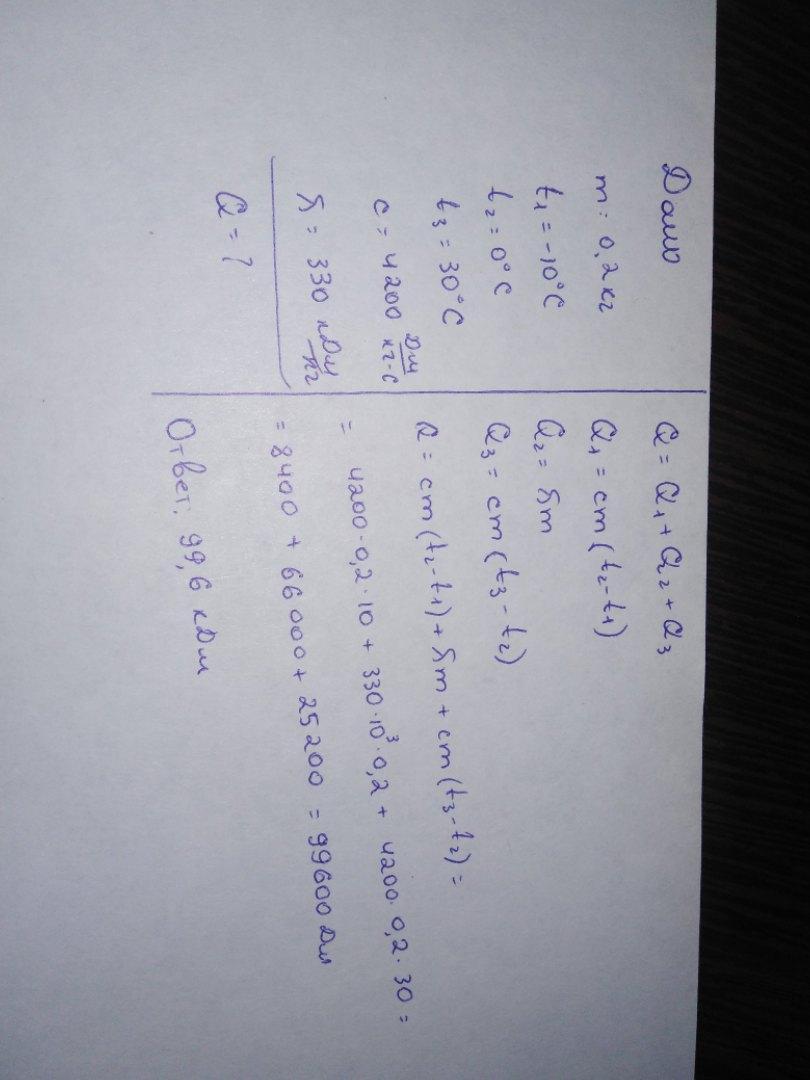 Дано
m = 0,2 кг
t₁ = -10°C
t₂ = 0°C
t₃ = 30°C
c = 4200 Дж/кг·C
λ = 330 кДж/кг
Q = ?
Q = Q₁ + Q₂ + Q₃
Q₁ = cm(t₂-t₁)
Q₂ = λm
Q₃ = cm(t₃-t₂)
Q = cm(t₂-t₁) + λm + cm(t₃-t₂) =
= 4200·0,2·10 + 330·10³·0,2 + 4200·0,2·30 =
= 8400 + 66000 + 25200 = 99600 Дж
Ответ: 99,6 кДж